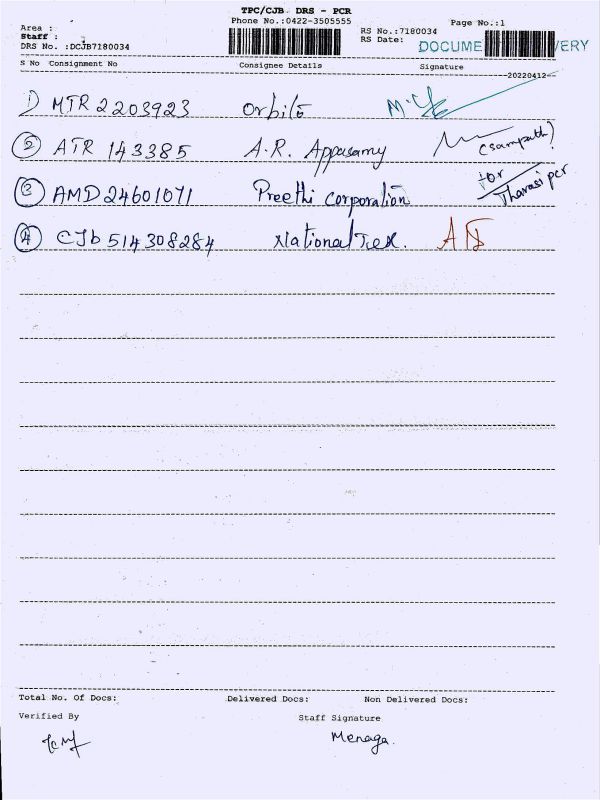 TPC/CJB DRS - PCR
Area : Phone No.:0422-3505555 Page No.:1
Staff : RS No.:7180034
DRS No. :DCJB7180034 RS Date: DOCUME VERY
S No Consignment No Consignee Details Signature
20220412
1) MTR 2203923 Orbito
2) ATR 143385 A.R. Appasamy (Sampath)
3) AMD 24601071 Preethi Corporation for
4) CJb 514308284 National Tex.
Total No. Of Docs: Delivered Docs: Non Delivered Docs:
Verified By Staff Signature
Menaga.